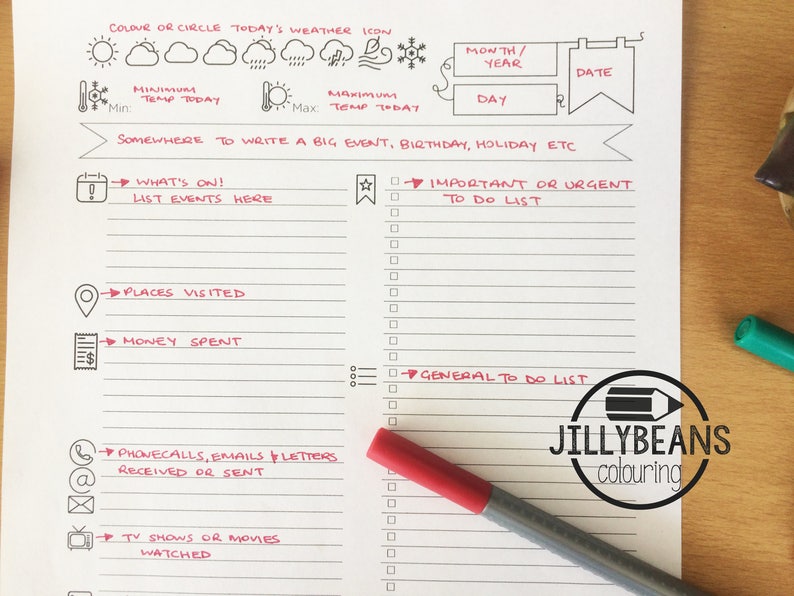 COLOUR OR CIRCLE TODAY'S WEATHER ICON
MONTH/
YEAR
DATE
DAY
Min:
MINIMUM
TEMP TODAY
Max:
MAXIMUM
TEMP TODAY
SOMEWHERE TO WRITE A BIG EVENT, BIRTHDAY, HOLIDAY ETC
WHAT'S ON!
LIST EVENTS HERE
PLACES VISITED
$
MONEY SPENT
@
PHONECALLS, EMAILS & LETTERS
RECEIVED OR SENT
TV SHOWS OR MOVIES
WATCHED
IMPORTANT OR URGENT
TO DO LIST
GENERAL TO DO LIST
JILLYBEANS
colouring